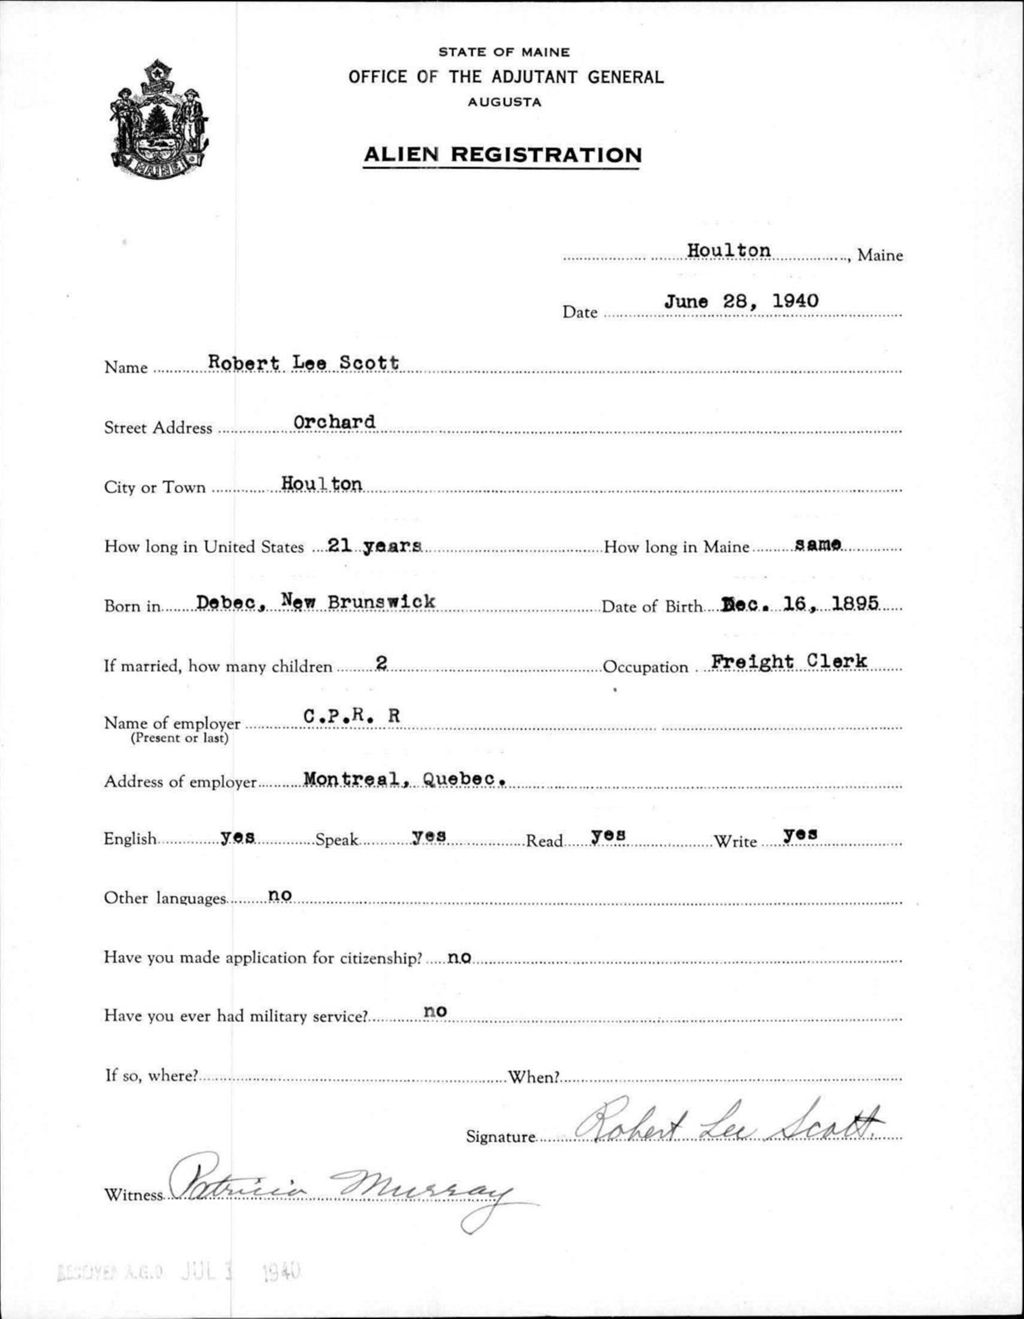 STATE OF MAINE
OFFICE OF THE ADJUTANT GENERAL
AUGUSTA
ALIEN REGISTRATION
MAINE
Houlton, Maine
Date June 28, 1940
Name Robert Lee Scott
Street Address Orchard
City or Town Houlton
How long in United States 21 years How long in Maine same
Born in Debec, New Brunswick Date of Birth Dec. 16, 1895
If married, how many children 2 Occupation Freight Clerk
Name of employer C.P.R. R
(Present or last)
Address of employer Montreal, Quebec.
English yes Speak yes Read yes Write yes
Other languages no
Have you made application for citizenship? no
Have you ever had military service? no
If so, where? When?
Signature Robert Lee Scott.
Witness Patricia Murray
A.G.O JUL 1940